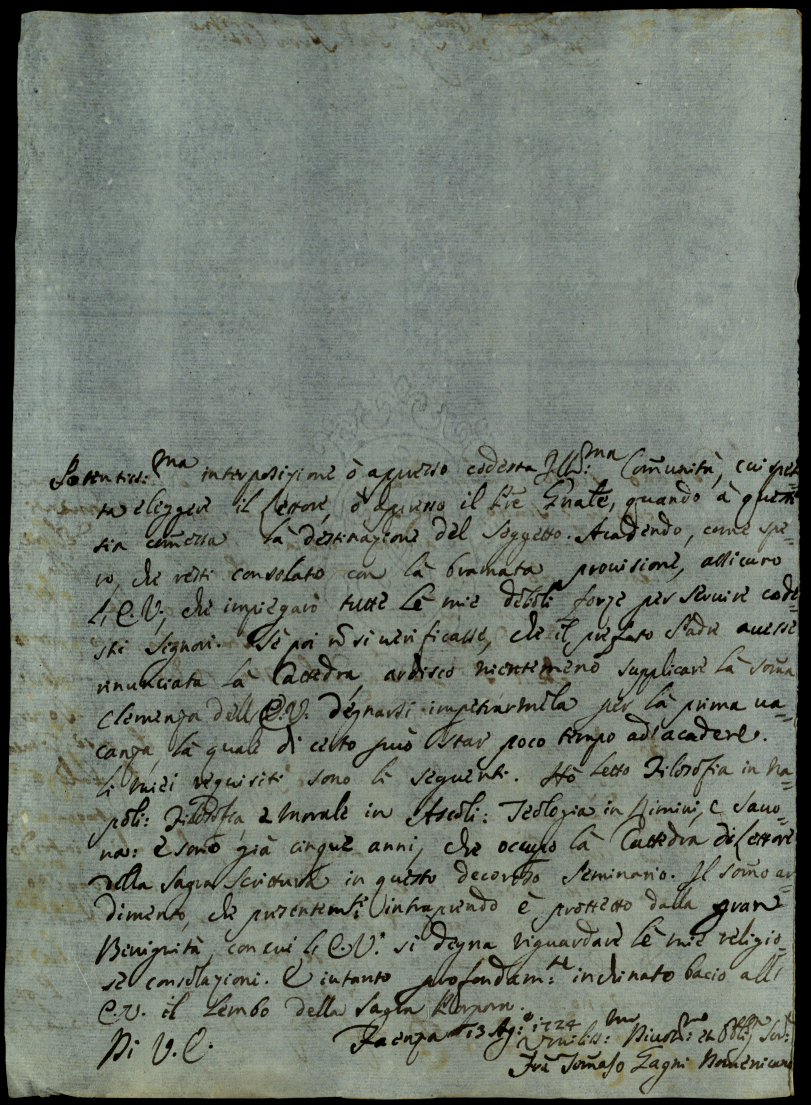 Potentiss:ma interposizione ò apresso codesta Ill:ma Com̃unità, cui spet-
ta eleggere il Lettore, ò apresso il P̃re Gñale, quando à questi
sia com̃essa la destinazione del Soggetto. Acadendo, come spe-
ro, che resti consolato con la bramata provisione, assicuro
l'E.V., che impiegarò tutte le mie deboli forze per servire code-
sti Signori. Se poi nõ si verificasse, che il prefato Padre avesse
rinunciata la Cattedra, ardisco nientemeno supplicare la som̃a
Clemenza dell'E.V. degnarsi impetrarmela per la prima va-
canza, la quale di certo può star poco tempo ad acadere.
Li miei requisiti sono li seguenti. Hò letto Filosofia in Na-
poli: Filosofia, e Morale in Ascoli: Teologia in Rimini, e Savo-
na: e sono già cinque anni, che occupo la Cattedra di Lettore
della Sagra Scrittura in questo decoroso Seminario. Il som̃o ar-
dimento, che presentem:te intraprendo è protetto dalla gran
Benignità, con cui l'E.V. si degna riguardare le mie religio-
se consolazioni. E intanto profondam:te inchinato bacio all'
E.V. il Lembo della Sagra Porpora.
Di V.E. Faenza 13 Ag:o 1724
Umiliss:mo Divot:mo ed Obblig Ser:
Frà Tom̃aso Zagni Domenicano